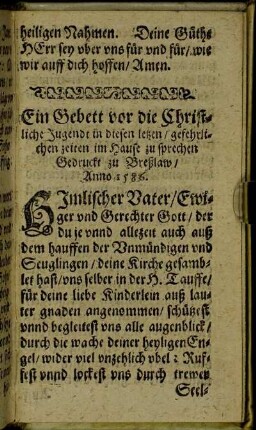 heiligen Nahmen. Deine Güth
HErr sey vber vns für vnd für/ wie
wir auff dich hoffen/ Amen.
Ein Gebett vor die Christ-
liche Jugendt in diesen letzen/ gefehrli-
chen zeiten im Hause zu sprechen
Gedruckt zu Breßlaw/
Anno 1586.
HImlischer Vater/ Ewi-
ger vnd Gerechter Gott/ der
du je vnnd allezeit auch auß
dem hauffen der Vnmündigen vnd
Seuglingen/ deine Kirche gesamb-
let hast/ vns selber in der H. Tauffe/
für deine liebe Kinderlein auß lau-
ter gnaden angenommen/ schützest
vnnd begleitest vns alle augenblick/
durch die wache deiner heyligen En-
gel/ wider viel vnzehlich vbel: Ruf-
fest vnnd lockest vns durch trewen
Seel-